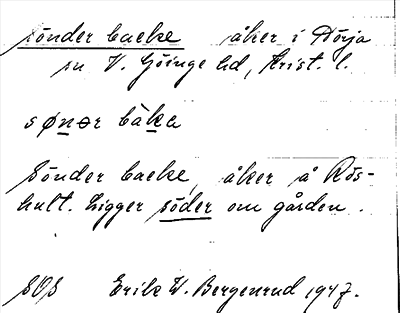 sönder backe åker i Nörja
sn V. Göinge hd, Krist. l.
sønər bàka
Sönder backe, åker å Rös-
hult. Ligger söder om gården.
SOS Erik W. Bergenrud 1947.